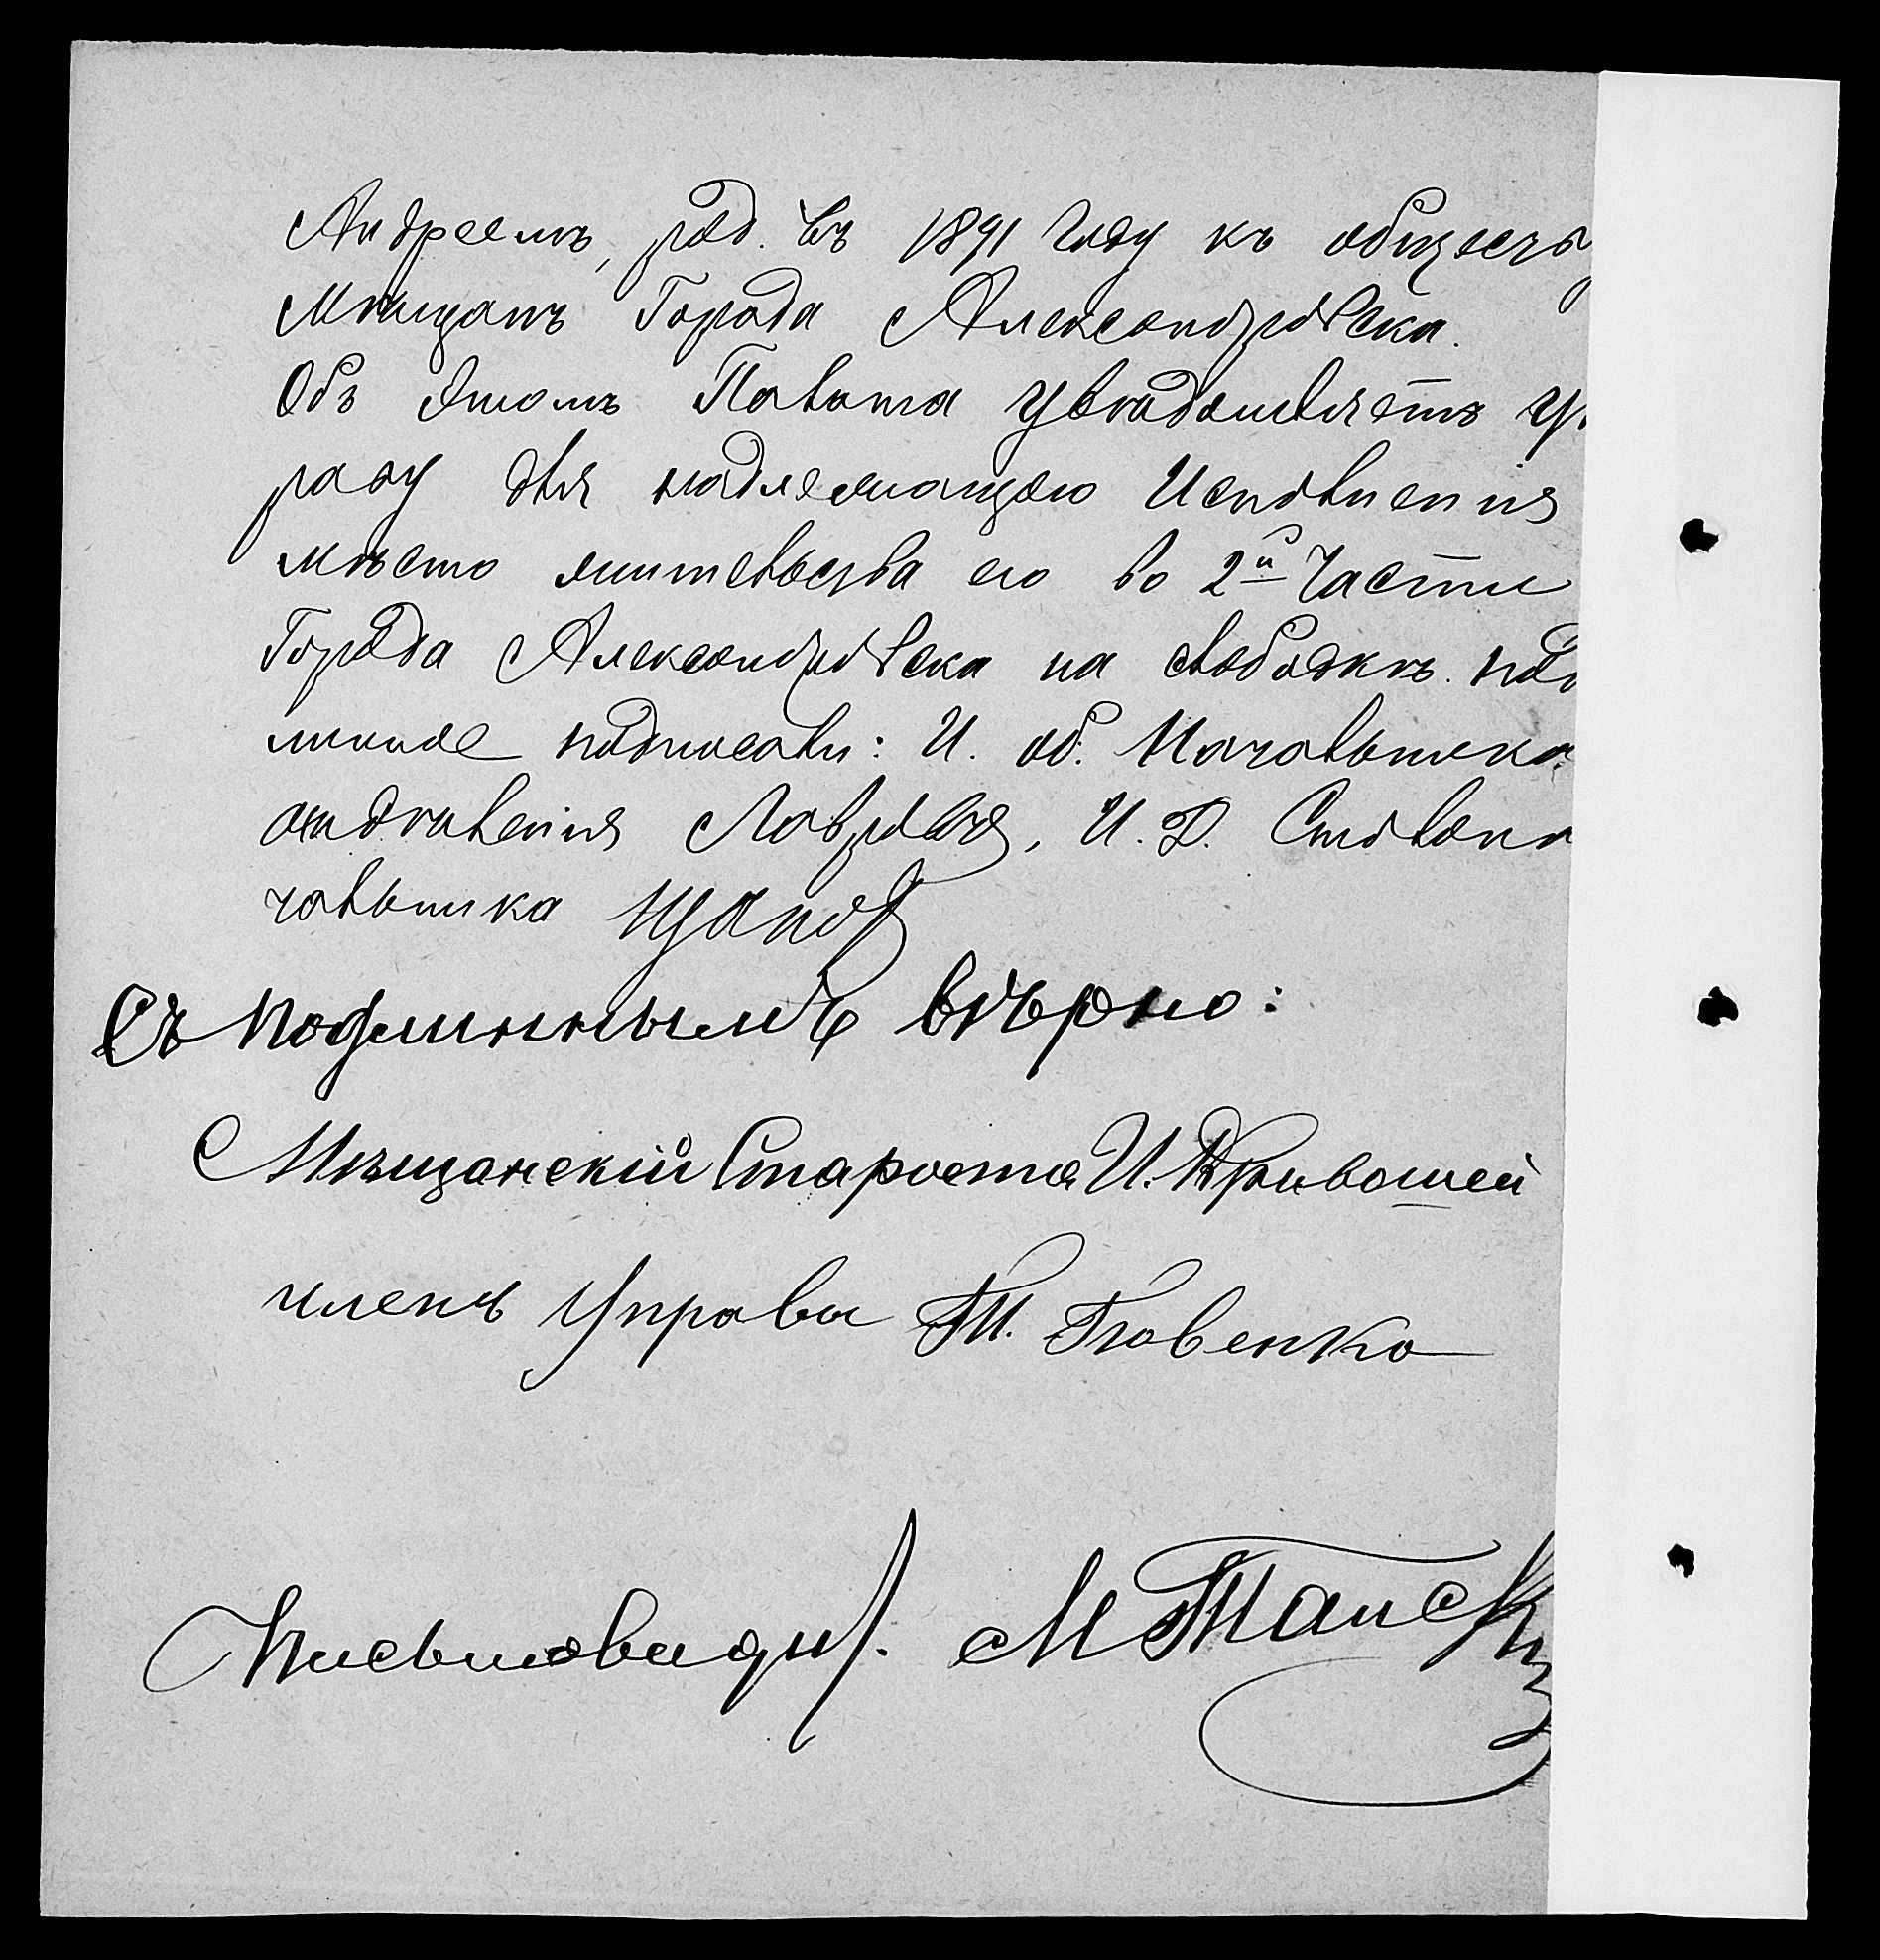 Андреемъ, род. въ 1891 году къ обществу
Мѣщанъ Города Александровска.
Объ этомъ Палата увѣдомляетъ Уп
раву для надлежащаго Исполненія
мѣсто жительства его во 2й Части
Города Александровска на слободкѣ. под
линное подписали: И. об. Начальника
отдѣленія Лавровъ, И. Д. Столона
чальника Щапов
Съ подлиннымъ вѣрно:
Мѣщанскій Староста И. Кривошей
членъ Управы Яовенко
Письмоводит. М Танск